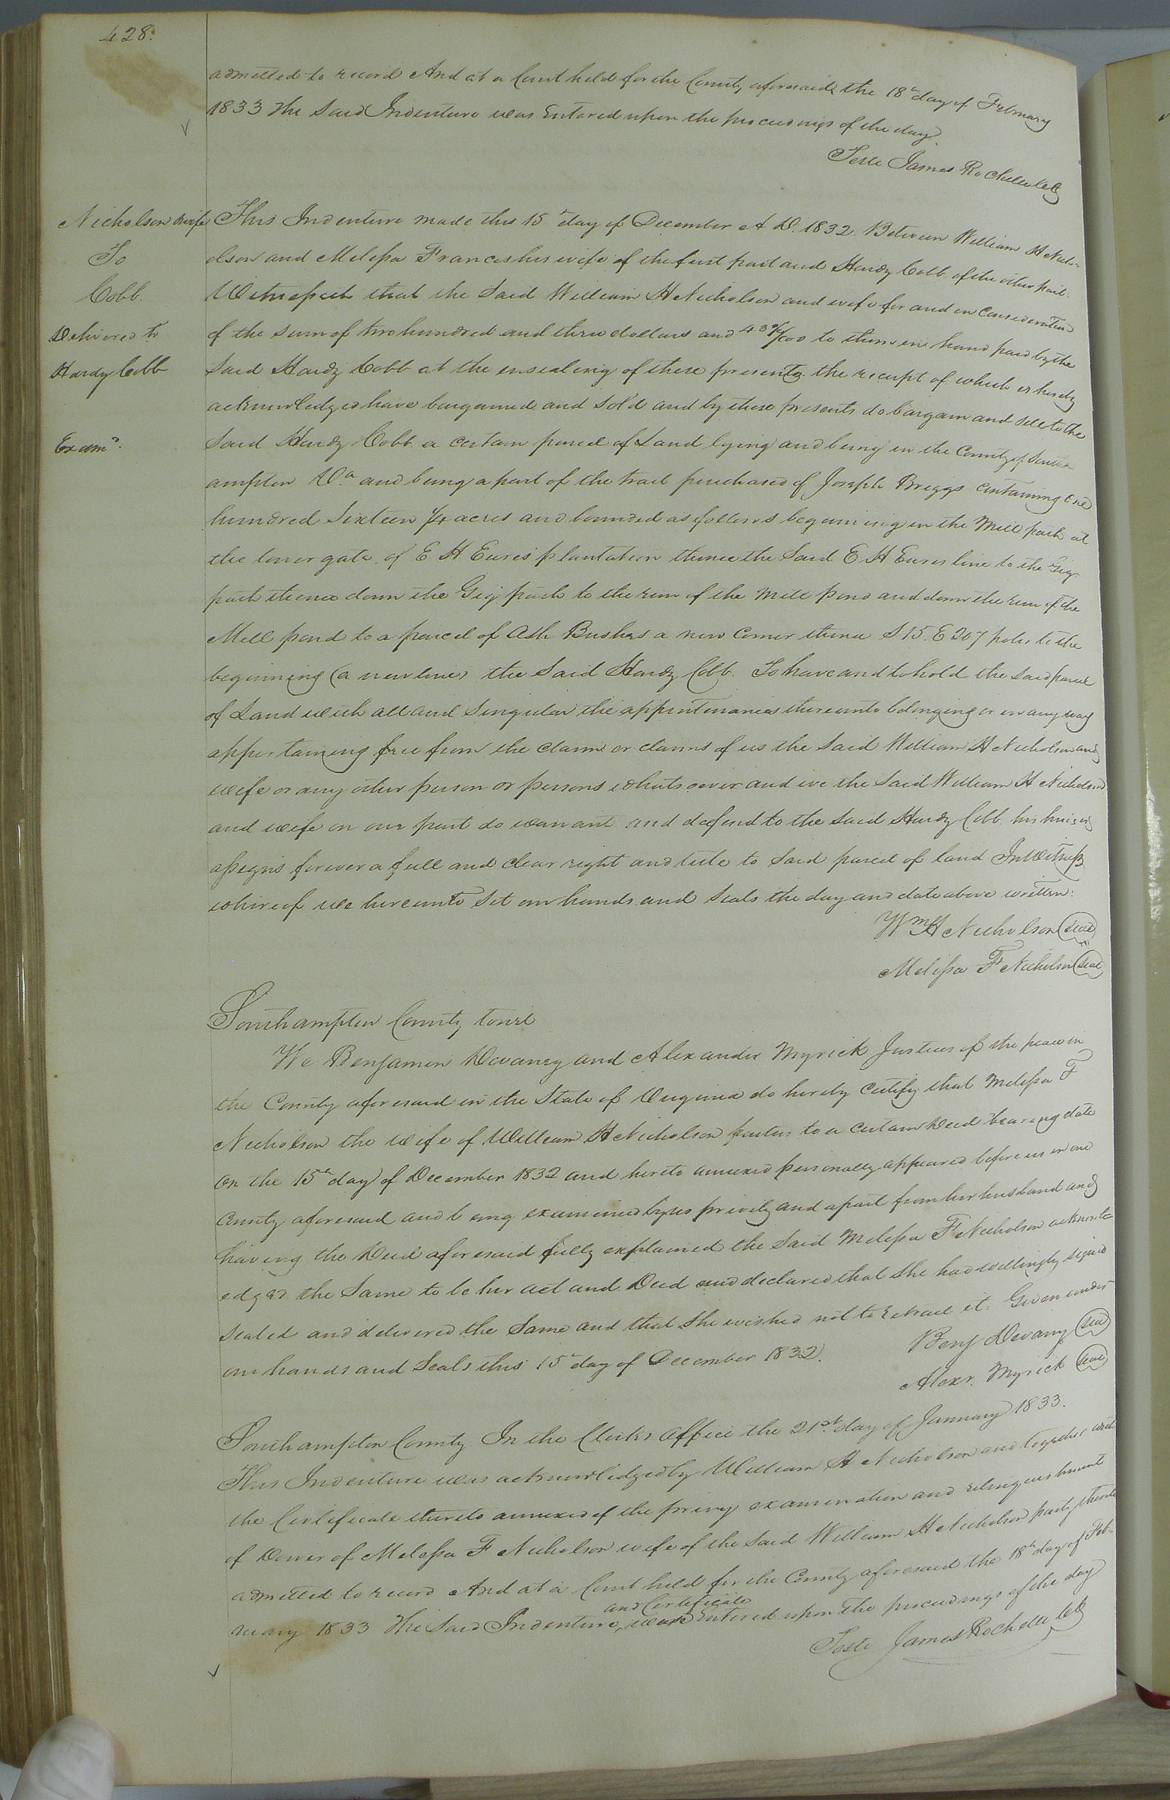 428.
admitted to record And at a Court held for the County aforesaid the 18th day of February
1833 The Said Indenture was Entered upon the proceedings of the day.
Teste James Rochelle clk
Nicholson & wife
To
Cobb.
Delivered to
Hardy Cobb
Examd.
This Indenture made this 15th day of December A D. 1832. Between William H Nich-
olson and Melessa Francis his wife of the first part and Hardy Cobb of the other part.
Witnesseth that the Said William H Nicholson and wife for and in Consideration
of the sum of two hundred and three dollars and 43 /100 to them in hand paid by the
Said Hardy Cobb at the ensealing of these presents the receipt of which is hereby
acknowledged have bargained and Sold and by these presents do bargain and sell to the
Said Hardy Cobb a certain parcel of Land lying and being in the County of South-
ampton Va and being a part of the tract purchased of Joseph Briggs Containing one
hundred Sixteen 1/4 acres and bounded as follows beginning in the Mill path at
the lower gate of E H Eures plantation thence the Said E H Eures line to the Gig
path thence down the Gig path to the run of the Mill Pond and down the run of the
Mill pond to a parcel of Ash Bushes a new Corner thence S 15. E 207 poles to the
beginning (a new line) the Said Hardy Cobb. To have and to hold the said parcel
of Land with all and Singular the appurtenances thereunto belonging or in any way
appertaining free from the claim or claims of us the Said William H Nicholson and
wife or any other person or persons whatsoever and we the Said William H Nicholson
and wife on our part do warrant and defend to the Said Hardy Cobb his heirs &
assigns forever a full and clear right and title to Said parcel of land In Witness
whereof we hereunto Set our hands and Seals the day and date above written.
Wm H Nicholson (seal)
Melessa F Nicholson (seal)
Southampton County towit
We Benjamin Devany and Alexander Myrick Justices of the peace in
the County aforesaid in the State of Virginia do hereby Certify that Melessa F
Nicholson the wife of William H Nicholson parties to a Certain Deed bearing date
on the 15th day of December 1832 and hereto annexed personally appeared before us in our
County aforesaid and being examined by us privily and apart from her husband and
having the Deed aforesaid fully explained the Said Melessa F Nicholson acknowl
edged the Same to be her act and Deed and declared that She had willingly signed
Sealed and delivered the Same and that She wished not to retract it. Given under
our hands and Seals this 15th day of December 1832.
Benj Devany (seal)
Alexr. Myrick (seal)
Southampton County In the Clerks office the 21st. day of January 1833.
This Indenture was acknowledged by William H Nicholson and together with
the Certificate thereto annexed of the privy examination and relinquishment
of Dower of Melessa F Nicholson wife of the Said William H Nicholson party thereto
admitted to record And at a Court held for the County aforesaid the 18th day of Feb-
ruary 1833 The Said Indenture and Certificate were entered upon the proceedings of the day
Teste James Rochelle clk